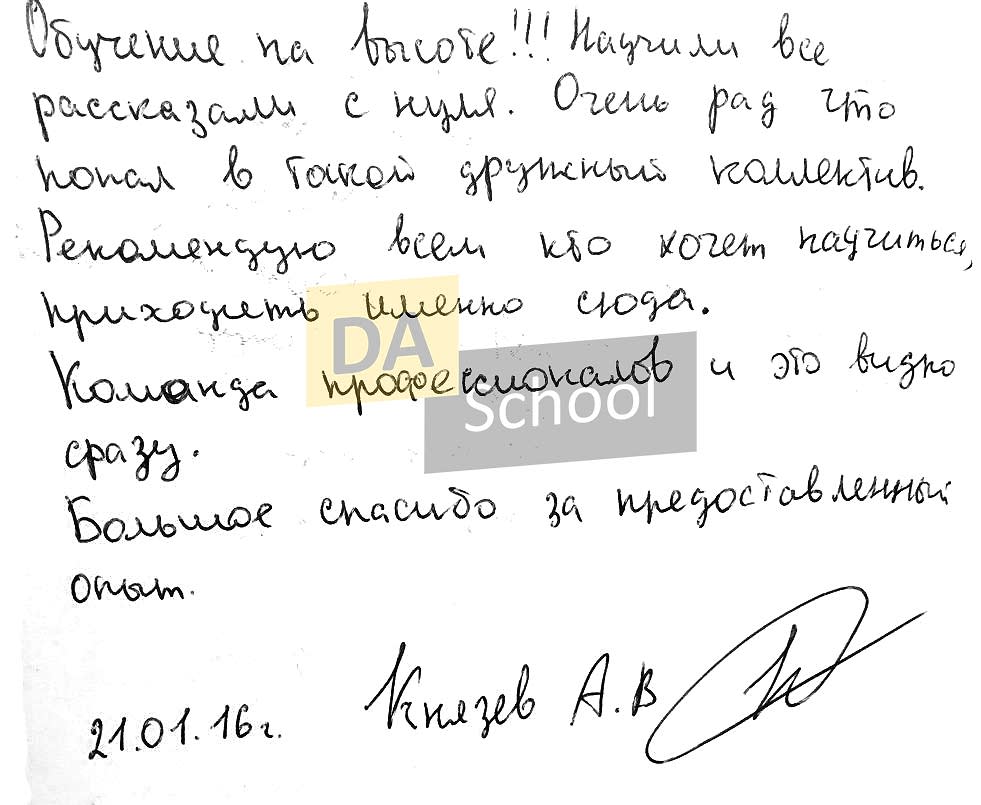 Обучение на высоте!!! Научили все
рассказали с нуля. Очень рад что
попал в такой дружный коллектив.
Рекомендую всем кто хочет научиться,
приходить именно сюда.
DA
Команда профессионалов и это видно
School
сразу.
Большое спасибо за предоставленный
опыт.
Князев А.В
21.01.16г.